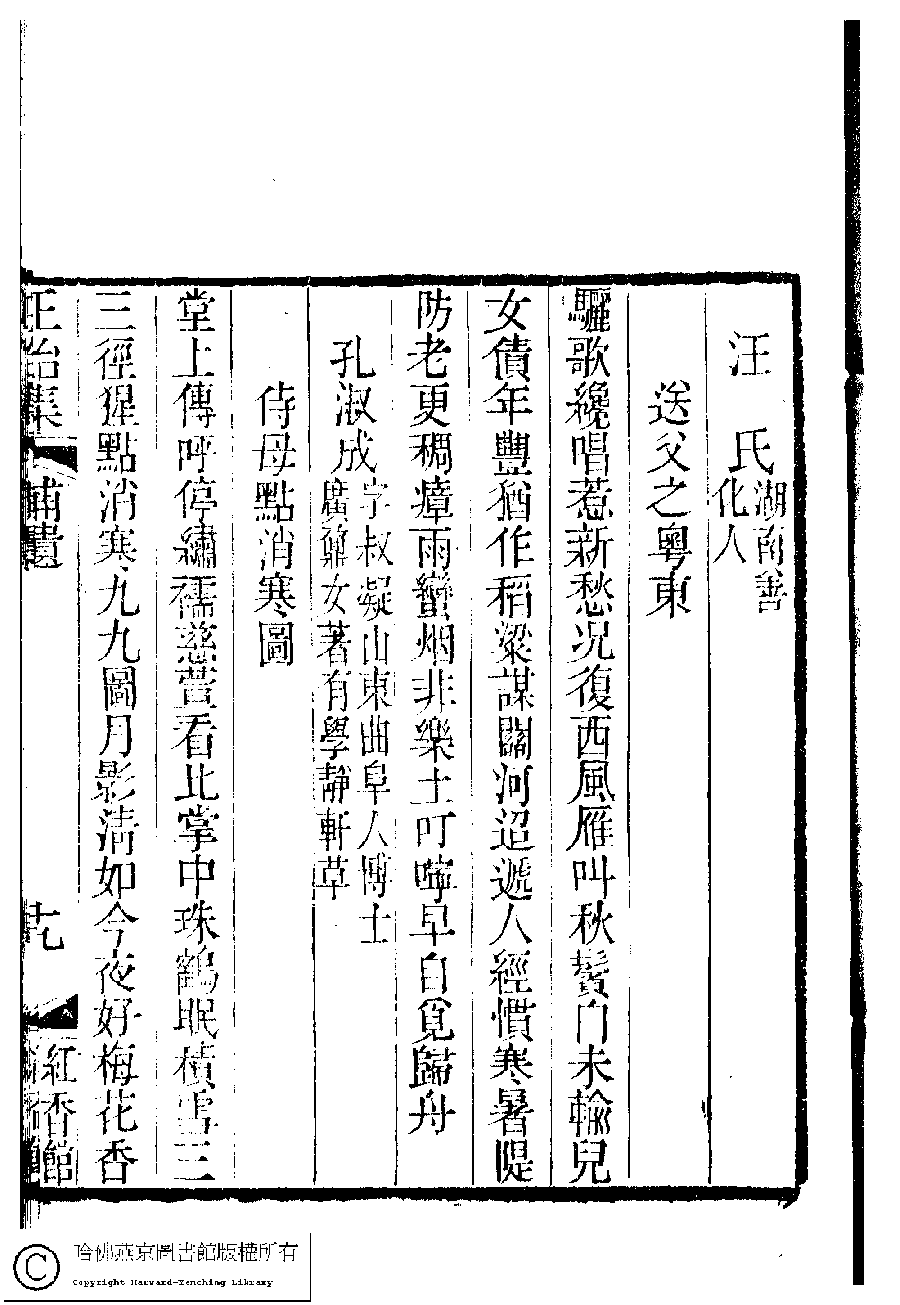 汪　氏湖南善
化人
送父之粵東
驪歌纔唱惹新愁况復西風雁叫秋鬢白未輸兒
女債年豐猶作稻粱謀關河迢遞人經慣寒暑隄
防老更稠瘴雨蠻烟非樂土叮嚀早自覓歸舟
孔淑成字叔凝山東曲阜人博士
廣鼐女著有學靜軒草
侍母點消寒圖
堂上傳呼停繡襦慈萱看比掌中珠鶴眠積雪三
三徑猩點消寒九九圖月影清如今夜好梅花香
正始集 補遺 紅香館
哈佛燕京圖書館版權所有
Copyright Harvard-Yenching Library